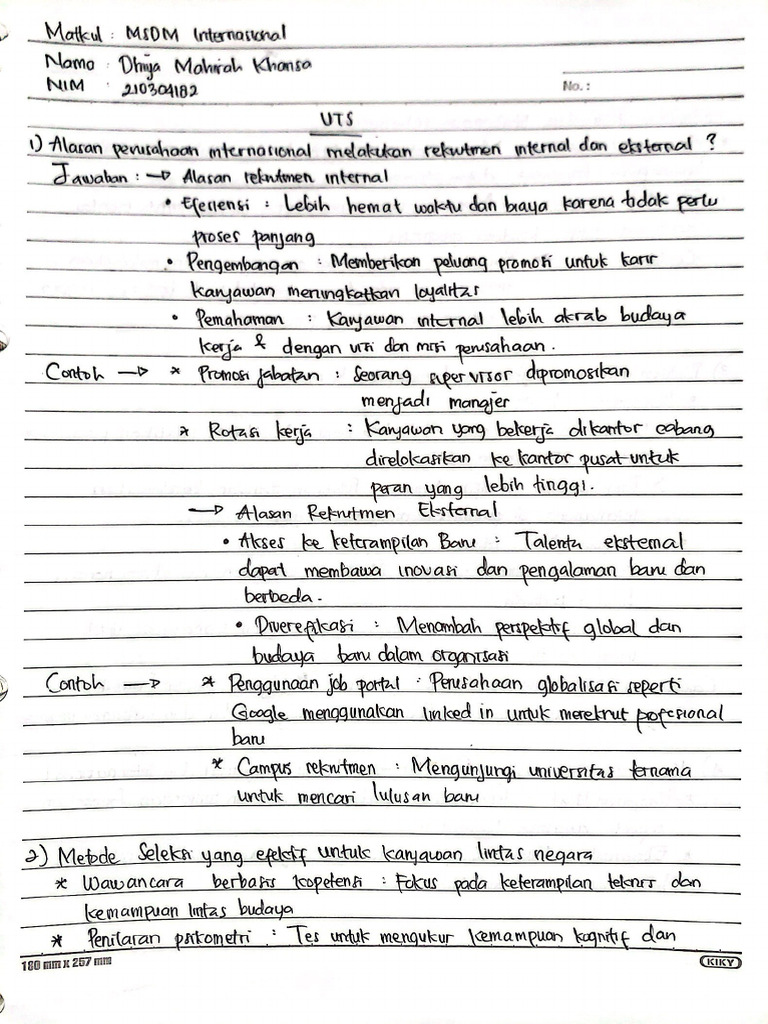 Matkul : MSDM Internasional
Nama : Dhija Mahirah Khansa
NIM : 210304182
No.:
UTS
1) Alasan perusahaan internasional melakukan rekrutmen internal dan eksternal ?
Jawaban : → Alasan rekrutmen internal
• Efesiensi : Lebih hemat waktu dan biaya karena tidak perlu
proses panjang
• Pengembangan : Memberikan peluang promosi untuk karir
karyawan meningkatkan loyalitas
• Pemahaman : Karyawan internal lebih akrab budaya
kerja & dengan visi dan misi perusahaan.
Contoh → * Promosi jabatan : Seorang supervisor dipromosikan
menjadi manajer
* Rotasi kerja : Karyawan yang bekerja dikantor cabang
direlokasikan ke kantor pusat untuk
peran yang lebih tinggi.
→ Alasan Rekrutmen Eksternal
• Akses ke keterampilan Baru : Talenta eksternal
dapat membawa inovasi dan pengalaman baru dan
berbeda.
• Diverefikasi : Menambah perspektif global dan
budaya baru dalam organisasi
Contoh → * Penggunaan job portal : Perusahaan globalisasi seperti
Google menggunakan linked in untuk merekrut profesional
baru
* Campus rekrutmen : Mengunjungi universitas ternama
untuk mencari lulusan baru
2) Metode Seleksi yang efektif untuk karyawan lintas negara
* Wawancara berbasis kopetensi : Fokus pada keterampilan teknis dan
kemampuan lintas budaya
* Penilaian psikometri : Tes untuk mengukur kemampuan kognitif dan
180 mm x 257 mm
KIKY